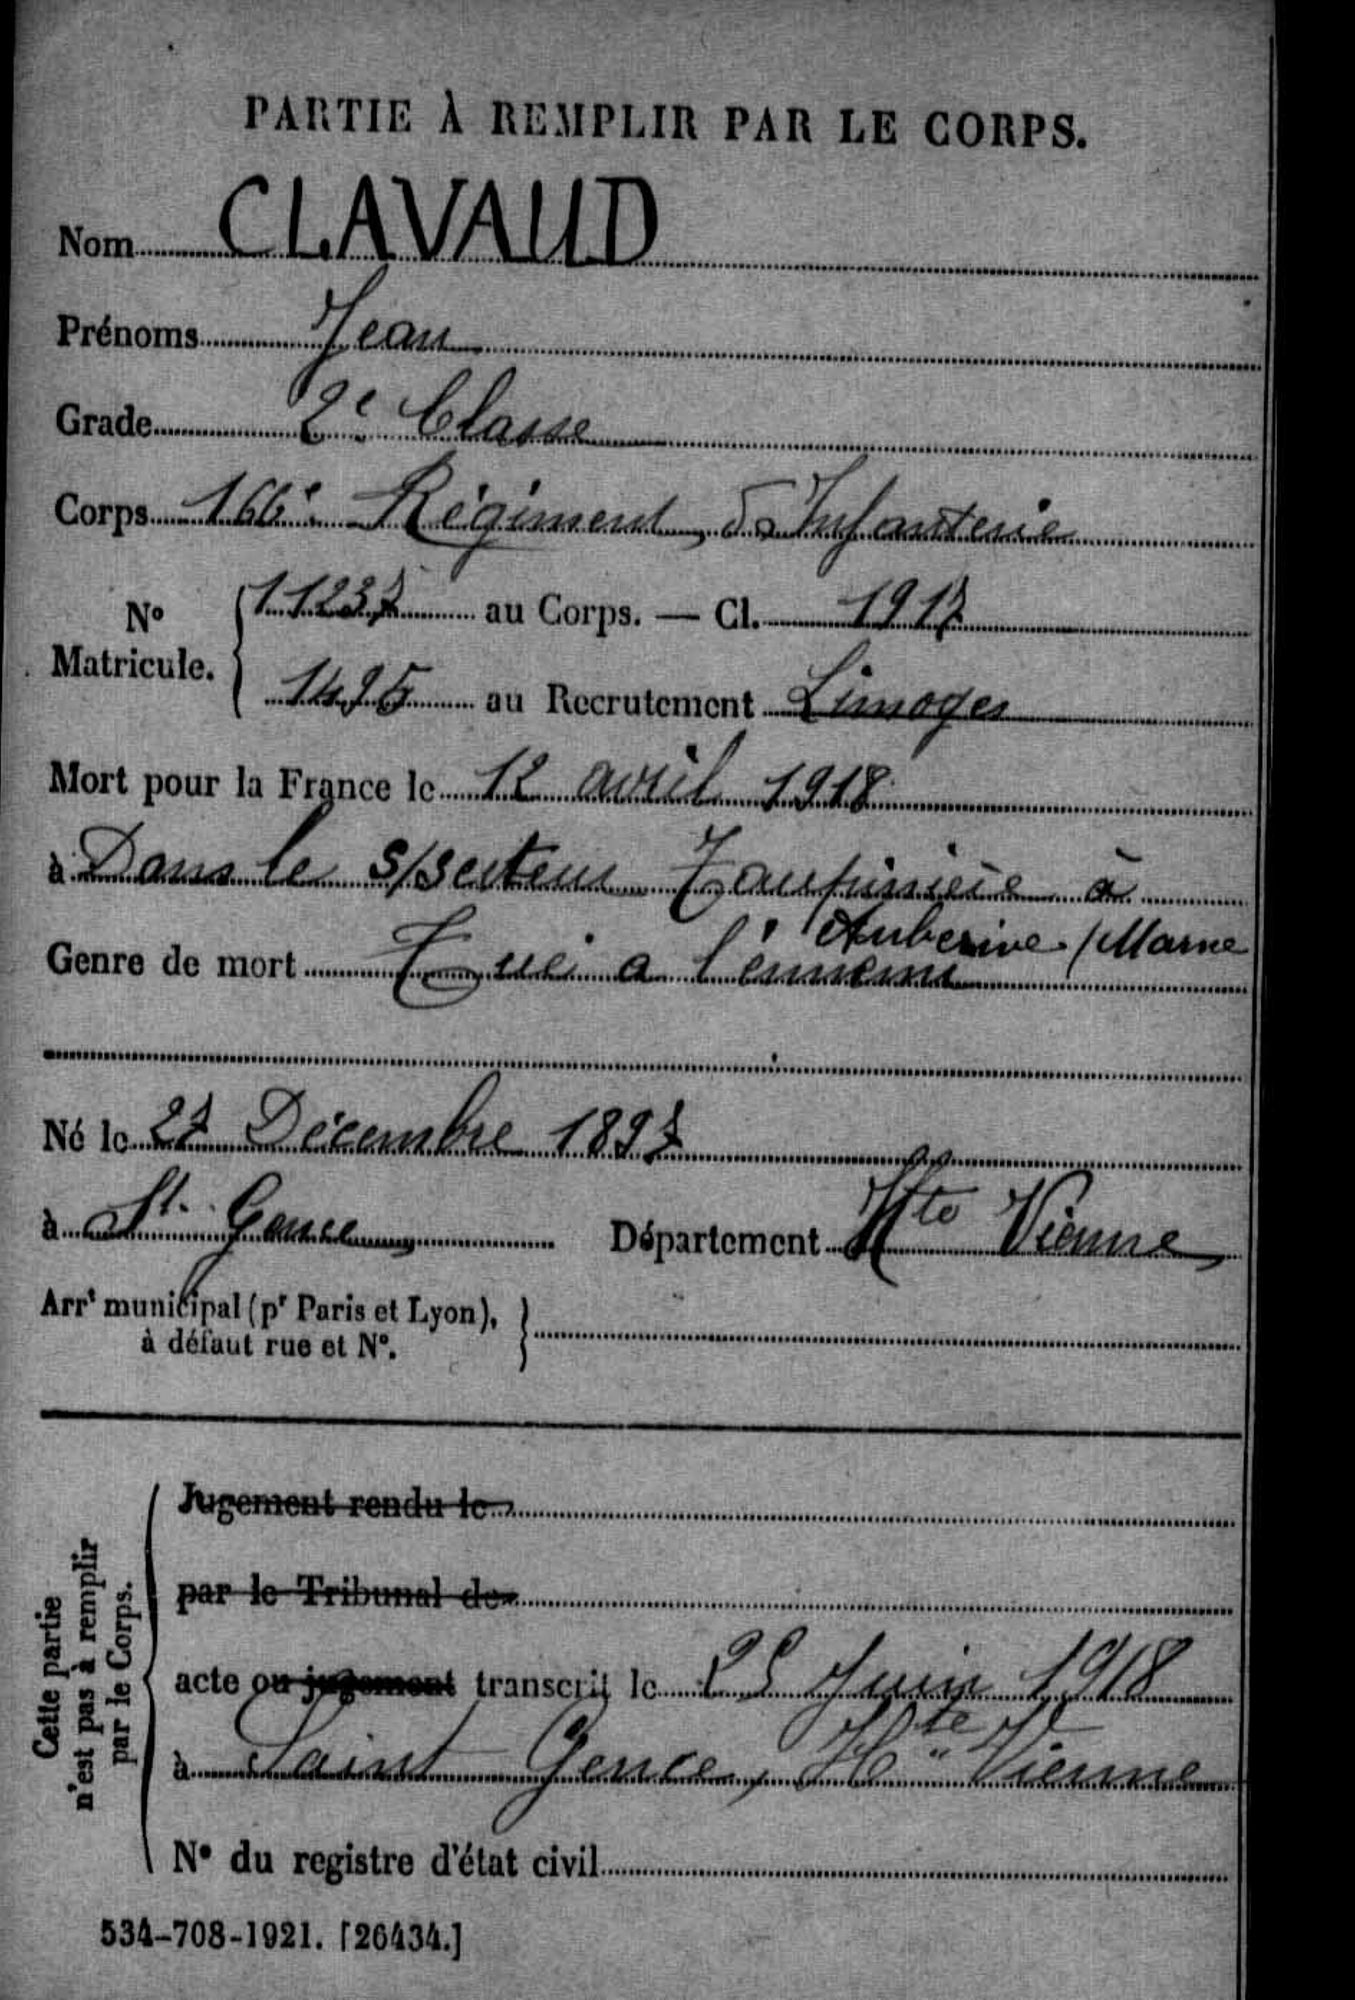 PARTIE À REMPLIR PAR LE CORPS.
Nom CLAVAUD
Prénoms Jean
Grade 2e Classe
Corps 166e Régiment d'Infanterie
No Matricule. 11237 au Corps. — Cl. 1917
1495 au Recrutement Limoges
Mort pour la France le 12 avril 1918
à Dans le s/secteur Taupinière à
Auberive /Marne
Genre de mort Tué a l'ennemi
Né le 27 Décembre 1897
à St. Gence Département Hte Vienne
Arrt municipal (pr Paris et Lyon),
à défaut rue et N°.
Cette partie
n'est pas à remplir
par le Corps.
Jugement rendu le
par le Tribunal de
acte ou jugement transcrit le 25 Juin 1918
à Saint Gence, Hte Vienne
N° du registre d'état civil
534-708-1921. [26434.]